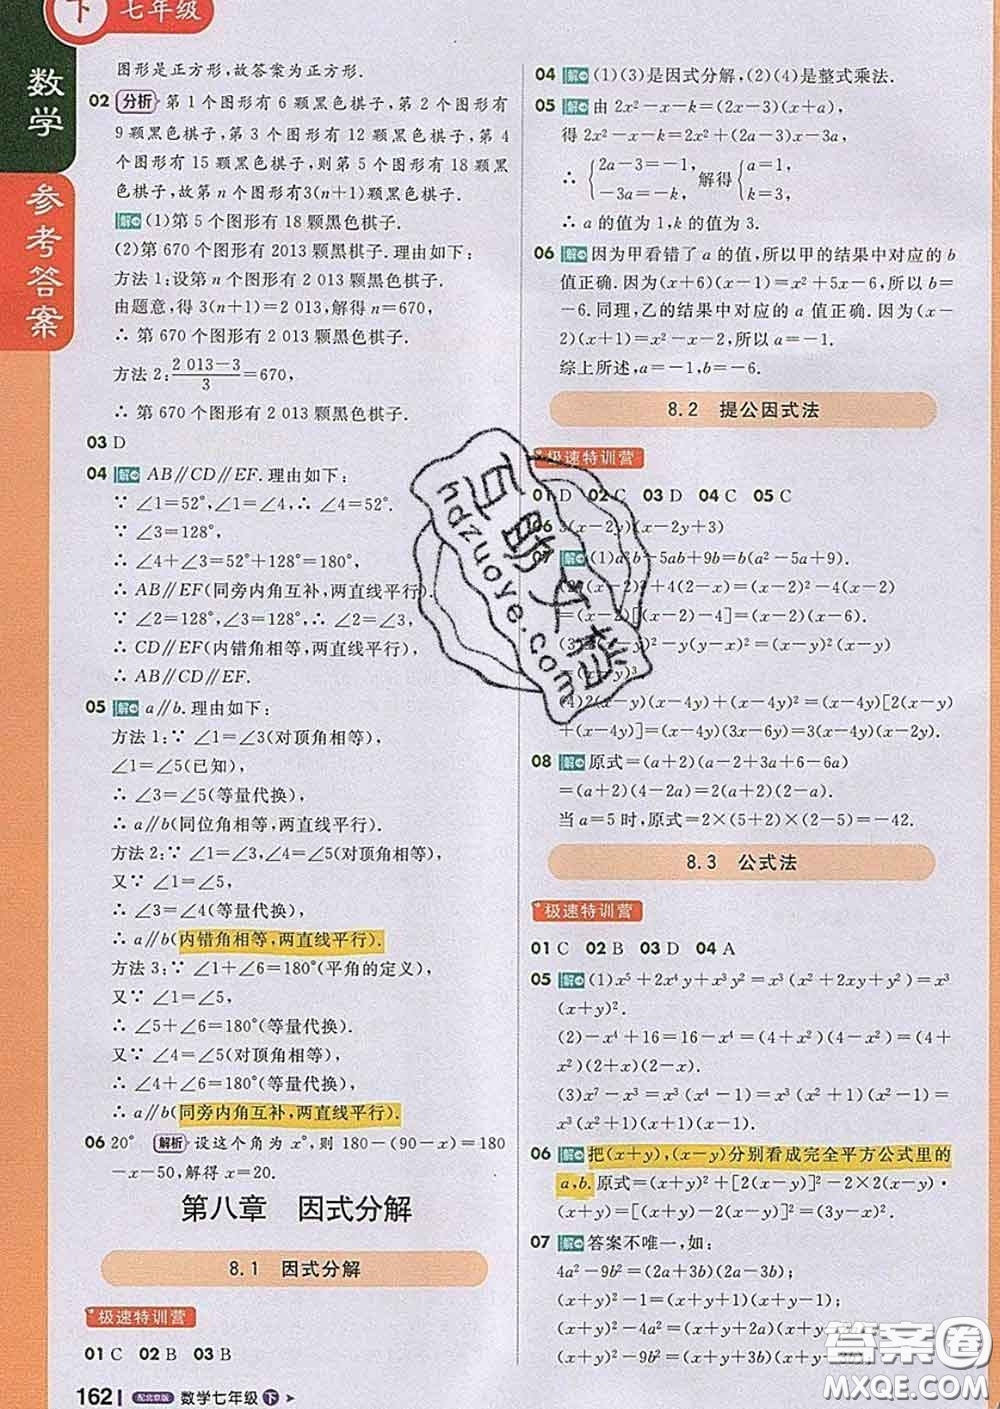 下 七年级
数学
参考答案
图形是正方形,故答案为正方形.
02 分析 第1个图形有6颗黑色棋子,第2个图形有
9颗黑色棋子,第3个图形有12颗黑色棋子,第4
个图形有15颗黑色棋子,则第5个图形有18颗黑
色棋子,故第n个图形有3(n+1)颗黑色棋子.
解 (1)第5个图形有18颗黑色棋子.
(2)第670个图形有2013颗黑棋子.理由如下:
方法1:设第n个图形有2 013颗黑色棋子.
由题意,得3(n+1)=2 013,解得n=670,
∴ 第670个图形有2 013颗黑色棋子.
方法2:(2 013-3)/3=670,
∴ 第670个图形有2 013颗黑色棋子.
03 D
04 解 AB∥CD∥EF.理由如下:
∵ ∠1=52°,∠1=∠4,∴ ∠4=52°.
∵ ∠3=128°,
∴ ∠4+∠3=52°+128°=180°,
∴ AB∥EF(同旁内角互补,两直线平行).
∵ ∠2=128°,∠3=128°,∴ ∠2=∠3,
∴ CD∥EF(内错角相等,两直线平行),
∴ AB∥CD∥EF.
05 解 a∥b.理由如下:
方法1:∵ ∠1=∠3(对顶角相等),
∠1=∠5(已知),
∴ ∠3=∠5(等量代换),
∴ a∥b(同位角相等,两直线平行).
方法2:∵ ∠1=∠4(对顶角相等),
又∵ ∠1=∠5,
∴ ∠3=∠4(等量代换),
∴ a∥b(内错角相等,两直线平行).
方法3:∵ ∠1+∠6=180°(平角的定义),
又∵ ∠1=∠5,
∴ ∠5+∠6=180°(等量代换).
又∵ ∠4=∠5(对顶角相等),
∴ ∠4+∠6=180°(等量代换),
∴ a∥b(同旁内角互补,两直线平行).
06 20° 解析 设这个角为x°,则180-(90-x)=180
-x-50,解得x=20.
第八章 因式分解
8.1 因式分解
极速特训营
01 C 02 B 03 B
162 配北京版 数学七年级下
04 解 (1)(3)是因式分解,(2)(4)是整式乘法.
05 解 由2x²-x-k=(2x-3)(x+a),
得2x²-x-k=2x²+(2a-3)x-3a,
∴ {2a-3=-1, -3a=-k, 解得{a=1, k=3,
∴ a的值为1,k的值为3.
06 解 因为甲看错了a的值,所以甲的结果中对应的b
值正确.因为(x+6)(x-1)=x²+5x-6,所以b=
-6.同理,乙的结果中对应的a值正确.因为(x-
2)(x+1)=x²-x-2,所以a=-1.
综上所述,a=-1,b=-6.
8.2 提公因式法
极速特训营
01 D 02 C 03 D 04 C 05 C
06 3(x-2y)(x-2y+3)
07 解 (1)a²b-5ab+9b=b(a²-5a+9).
(x-2)²+4(2-x)=(x-2)²-4(x-2)
=(x-2)[(x-2)-4]=(x-2)(x-6).
-y)²-y(x-y)²=(x-y)²(x-y)
=(x-y)³.
(4)2(x-y)(x-4y)+(x-4y)²=(x-4y)[2(x-y)
+(x-4y)]=(x-4y)(3x-6y)=3(x-4y)(x-2y).
08 解 原式=(a+2)(a-2+3a+6-5a)
=(a+2)(4-2a)=2(a+2)(2-a).
当a=5时,原式=2×(5+2)×(2-5)=-42.
8.3 公式法
极速特训营
01 C 02 B 03 D 04 A
05 解 (1)x⁵+2x⁴y+x³y²=x³(x²+2xy+y²)=x³
(x+y)².
(2)-x⁴+16=16-x⁴=(4+x²)(4-x²)=(4+
x²)(2+x)(2-x).
(3)x⁷-x³=x³(x⁴-1)=x³(x²+1)(x²-1)=
x³(x²+1)(x+1)(x-1).
06 解 把(x+y),(x-y)分别看成完全平方公式里的
a,b.原式=(x+y)²+[2(x-y)]²-2×2(x-y)·
(x+y)=[(x+y)-2(x-y)]²=(3y-x)².
07 解 答案不唯一,如:
4a²-9b²=(2a+3b)(2a-3b);
(x+y)²-1=(x+y+1)(x+y-1);
(x+y)²-4a²=(x+y+2a)(x+y-2a);
(x+y)²-9b²=(x+y+3b)(x+y-3b).
百助文档
hdznoye.com
答案圈
MXQE.COM